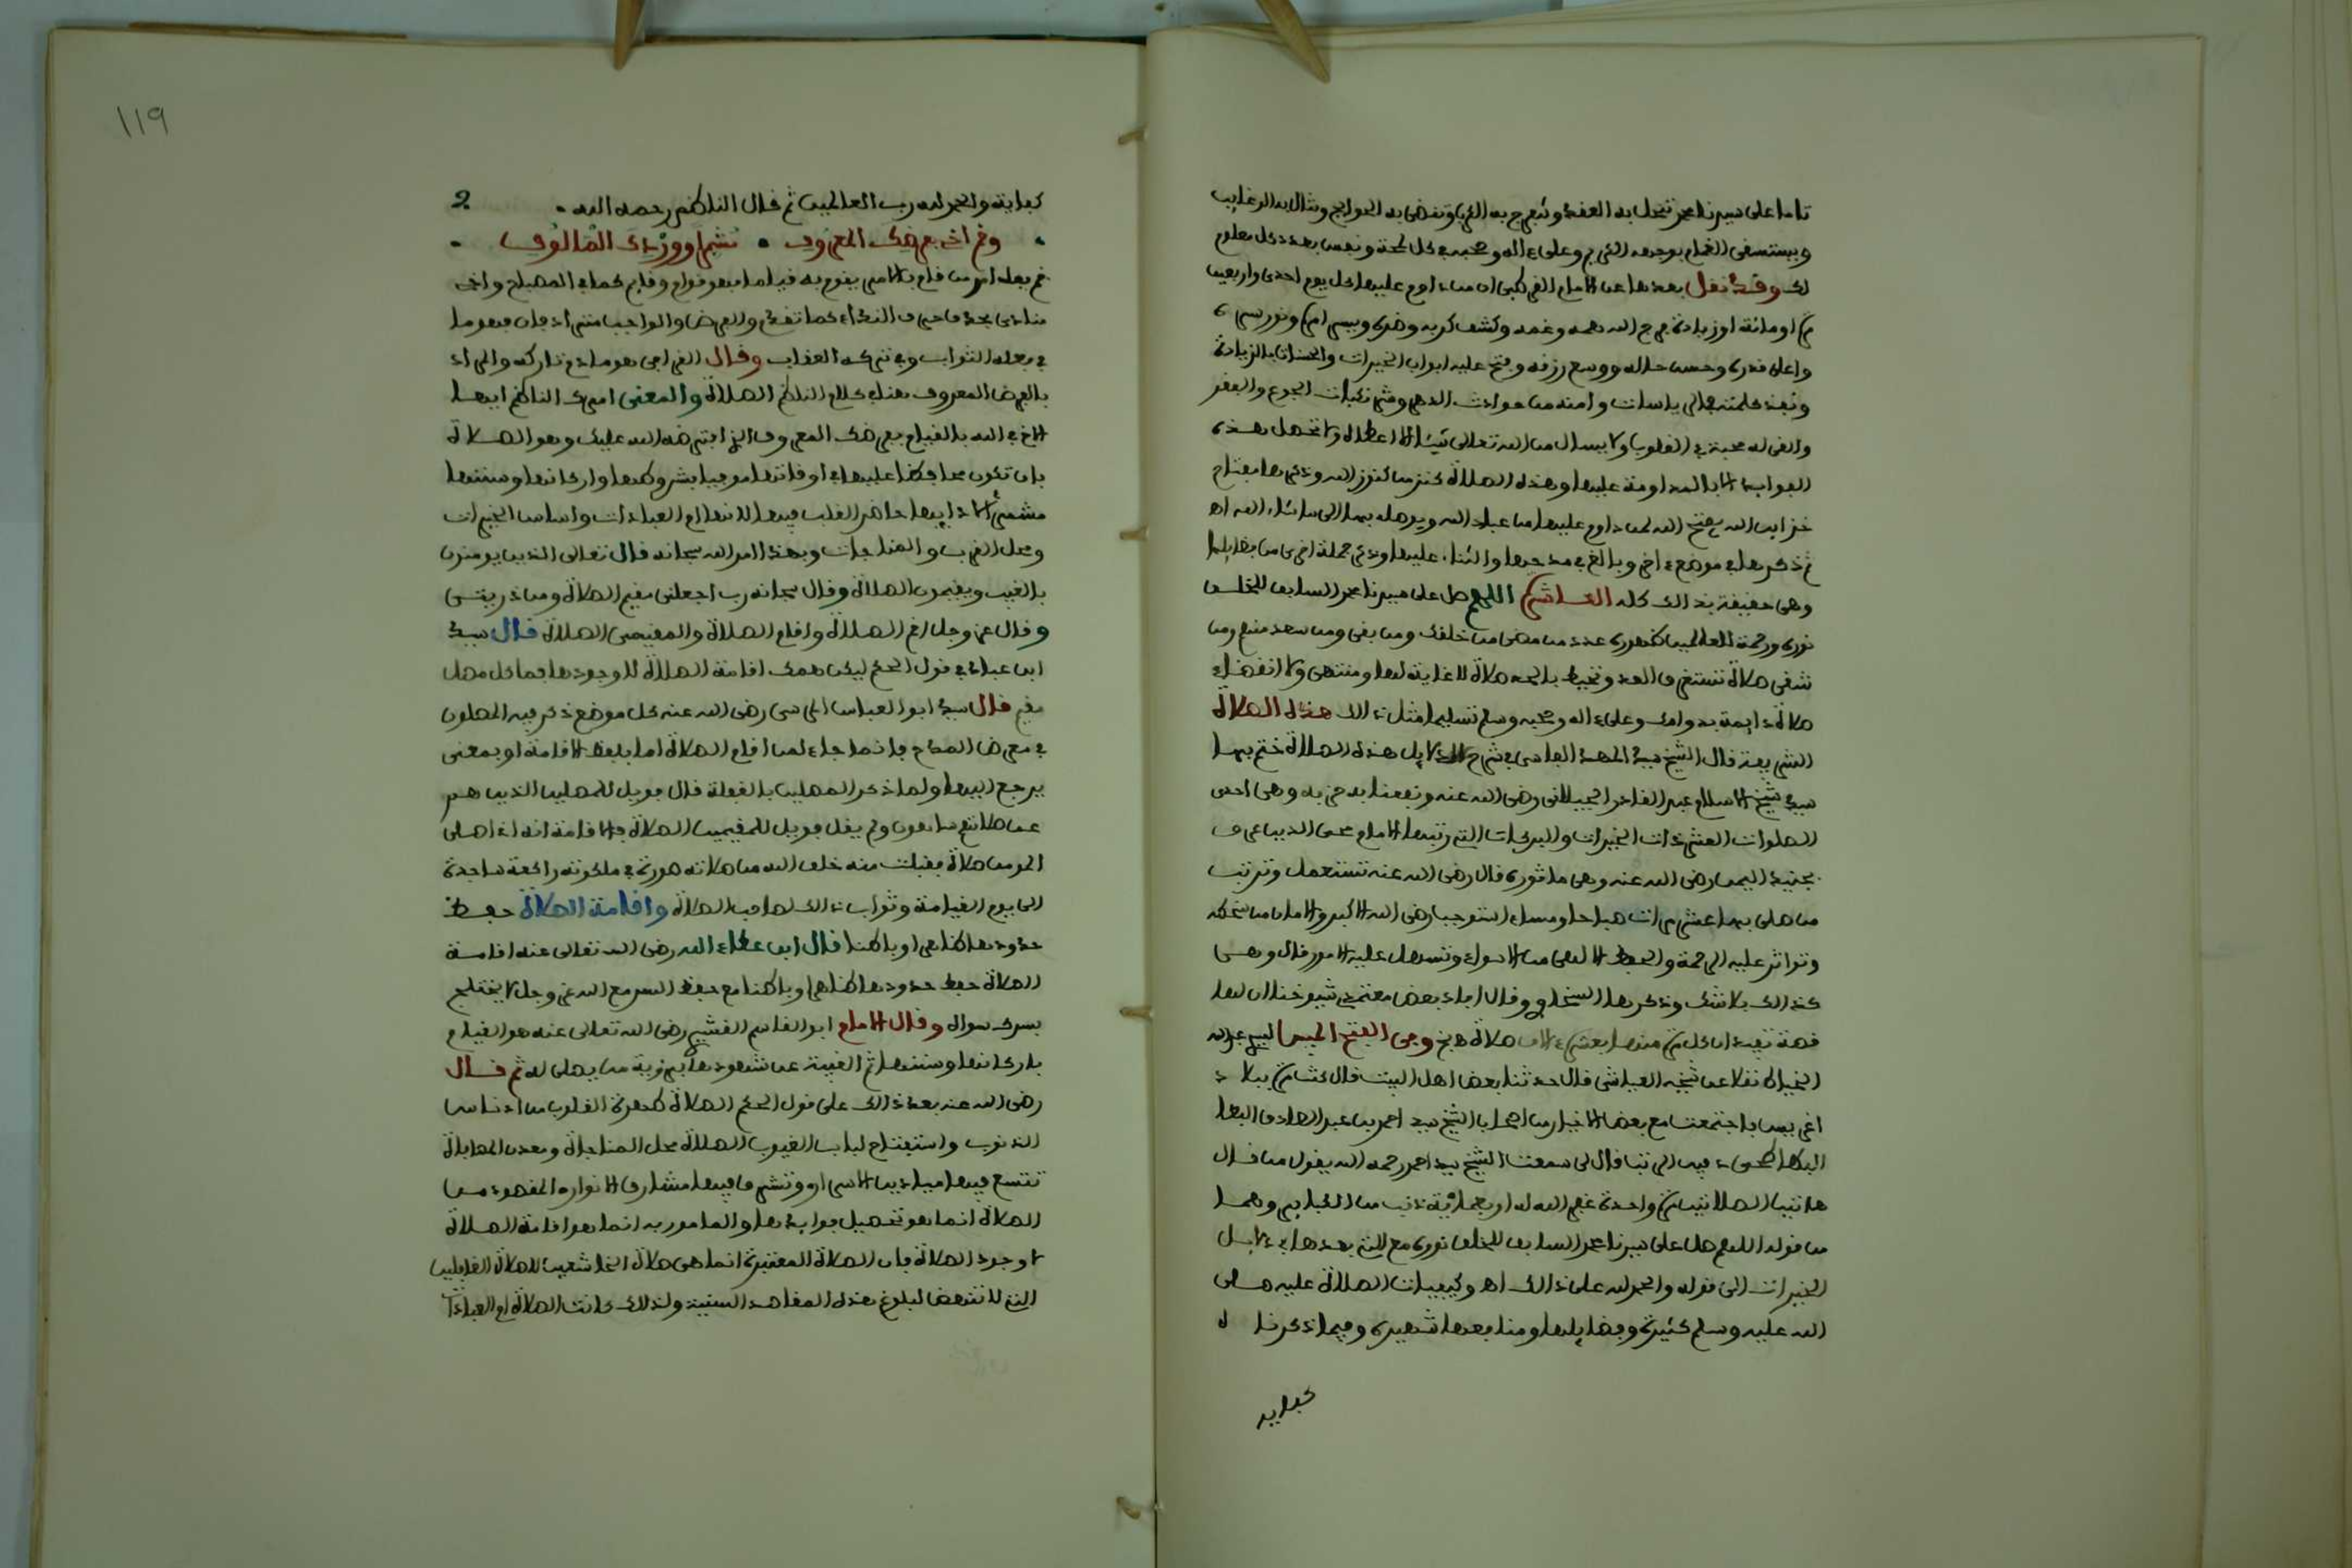 تاما على سيدنا محمد تنحل به العقد وتنفرج به الكرب وتقضى به الحوائج وتنال به الرغايب
ويستسقى الغمام بوجهه الكريم وعلى ءاله وصحبه في كل لمحة ونفس بعدد كل معلوم
لك وقد نقل بعضها عن الامام القرطبى ان من داوم عليها كل يوم احدى واربعين
مرة او مائة او زيادة فرج الله همه وغمه وكشف كربه وضره ويسر امره ونور سره
واعلى قدره وحسن حاله ووسع رزقه وفتح عليه ابواب الخيرات والحسنات بالزيادة
ونفذ كلمته في الرياسات وامنه من حوادث الدهر وشر نكبات الجوع والفقر
والقى له محبة في القلوب ولا يسال من الله تعالى شيئا الا اعطاه ولا تحصل هذه
الفوايد الا بالمداومة عليها وهذه الصلاة كنز من كنوز الله وذكرها مفتاح
خزاين الله يفتح الله لمن داوم عليها من عباد الله ويوصله بها الى ما شاء الله اه
ثم ذكرها في موضع ءاخر وبالغ في مدحها والثناء عليها وذكر جملة اخرى من فضايلها
وهى حقيقة بذالك كله العاشرة اللهم صل على سيدنا محمد السابق للخلق
نوره ورحمة للعالمين ظهوره عدد من مضى من خلقك ومن بقى ومن سعد منهم ومن
شقى صلاة تستغرق العد وتحيط بالحد صلاة لا غاية لها ومنتهى ولا انقضاء
صلاة دايمة بدوامك وعلى ءاله وصحبه وسلم تسليما مثل ذالك هذه الصلاة
الشريفة قال الشيخ سيد المهد الفاسى في شرح الدلايل هذه الصلاة ختم بها
سيد شيخ الاسلام عبد القادر الجيلانى رضى الله عنه ونفعنا به حزبه وهى احدى
الصلوات العشر ذات الخيرات والبركات التى رتبها الامام محى الدين عرف
بجنيد اليمن رضى الله عنه وهى ماثورة قال رضى الله عنه تستعمل وترتب
من صلى بها عشر مرات صباحا ومساء استوجب رضى الله الاكبر والامان من سخطه
وتواتر عليه الرحمة والحفظ الالهى من الاسواء وتسهل عليه الامور قال وهى
كذالك بلا شك وذكرها السخاوى وقال افاد بعض معتمدى شيوخنا ان لها
قصة تفيد ان كل مرة منها بعشرة ءالاف صلاة وفى الفتح المبين لسيد عبد الله
الخياط نقلا عن شيخه العياشى قال حدثنا بعض اهل البيت قال كنت مرة ببلاد
اغريس فاجتمعت مع بعض الاخيار من اصحاب الشيخ سيد احمد بن عبد الصادق
قال لى سمعت الشيخ سيد احمد رحمه الله يقول من قال
هاتين الصلاتين مرة واحدة غفر الله له اربعمائة ذنب من الكباير وهما
من قوله اللهم صل على سيدنا محمد السابق للخلق نوره مع التى بعدها في دلايل
الخيرات الى قوله والحمد لله على ذالك اه وكيفيات الصلاة عليه صلى
الله عليه وسلم كثيرة وفضايلها ومنافعها شهيرة وفيما ذكرنا له
كفاية
١١٩
كفاية والحمد لله رب العالمين ثم قال الناظم رحمه الله
وقم اخى بفرضك المعروف شهرا ووردك المالوف
قم فعل امر من قام بالامر يقوم به قياما فهو قوام وقايم كما في المصباح واخى
منادى بحذف حرف النداء كما تقدم والفرض والواجب مترادفان فهو ما
في فعله الثواب وفي تركه العقاب وقال القرافى هو ما ذم تاركه والمراد
بالفرض المعروف هنا في كلام الناظم الصلاة والمعنى امرك الناظم ايها
الاخ في الله بالقيام بفرضك المعروف الذى افترضه الله عليك وهو الصلاة
بان تكون محافظا عليها في اوقاتها موفيا بشروطها واركانها وسننها
حاضر القلب فيها لانها ام العبادات واساس الخيرات
ومحل القرب والمناجات وبهذا امر الله سبحانه قال تعالى الذين يومنون
بالغيب ويقيمون الصلاة وقال سبحانه رب اجعلنى مقيم الصلاة ومن ذريتى
وقال عز وجل اقم الصلاة واقام الصلاة والمقيمين الصلاة قال سيد
ابن عباد في قول الحكم ليكن همك اقامة الصلاة لا وجودها فما كل مصل
مقيم قال سيد ابو العباس المرسى رضى الله عنه كل موضع ذكر فيه المصلون
في معرض المدح فانما جاء لمن اقام الصلاة اما بلفظ الاقامة او بمعنى
يرجع اليها ولما ذكر المصلين بالغفلة قال فويل للمصلين الذين هم
عن صلاتهم ساهون ولم يقل فويل للمقيمين الصلاة فالاقامة انه اذا صلى
المومن صلاة فقبلت منه خلق الله من صلاته صورة في ملكوته راكعة ساجدة
الى يوم القيامة وثواب ذالك لصاحب الصلاة واقامة الصلاة حفظ
حدودها ظاهرا وباطنا قال ابن عطاء الله رضى الله تعالى عنه اقامة
الصلاة حفظ حدودها ظاهرا وباطنا مع حفظ السر مع الله عز وجل لا يختلج
بسرك سواه وقال الامام ابو القاسم القشيرى رضى الله تعالى عنه هو القيام
باركانها وسننها ثم الغيبة عن شهودها برؤية من يصلى له ثم قال
رضى الله عنه بعد ذالك على قول الحكم الصلاة طهرة القلوب من ادناس
الذنوب واستفتاح لباب الغيوب الصلاة محل المناجاة ومعدن المصافاة
تتسع فيها ميادين الاسرار وتشرق فيها مشارق الانوار المقصود من
الصلاة انما هو تحصيل فوايدها والمامور به انما هو اقامة الصلاة
لا وجود الصلاة فان الصلاة المعتبرة انما هى صلاة الخاشعين لا صلاة الغافلين
التى لا تنهض لبلوغ هذه المقاصد السنية ولذالك كانت الصلاة ام العبادات